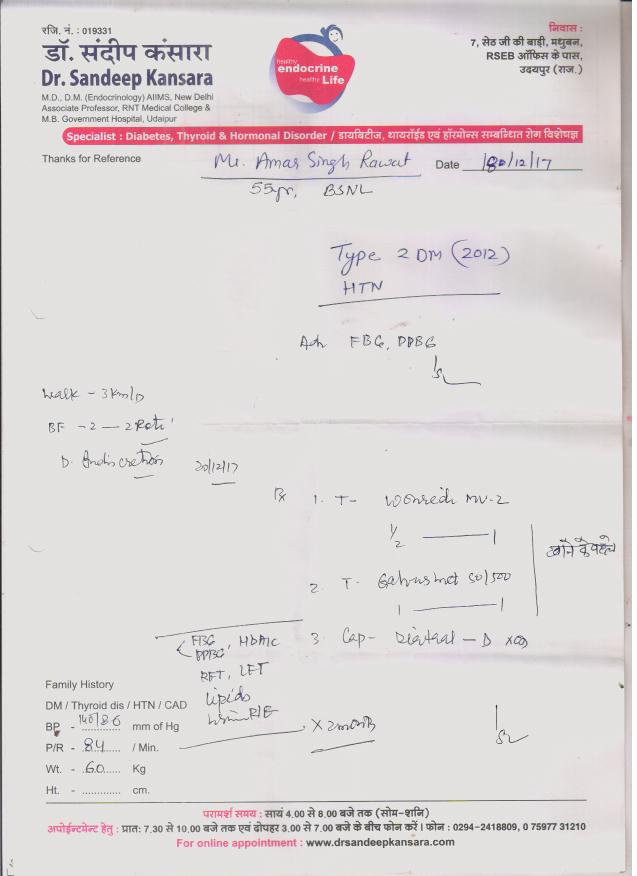 रजि. नं. : 019331
डॉ. संदीप कंसारा
Dr. Sandeep Kansara
M.D., D.M. (Endocrinology) AIIMS, New Delhi
Associate Professor, RNT Medical College &
M.B. Government Hospital, Udaipur
healthy
endocrine
healthy Life
निवास :
7, सेठ जी की बाड़ी, मधुबन,
RSEB ऑफिस के पास,
उदयपुर (राज.)
Specialist : Diabetes, Thyroid & Hormonal Disorder / डायबिटीज, थायरॉईड एवं हॉरमोन्स सम्बन्धित रोग विशेषज्ञ
Thanks for Reference Mr. Amar Singh Rawat Date /12/17
55yr, BSNL
Type 2 DM (2012)
HTN
Adv FBG, PPBG
Walk - 3km/D
BF - 2 — 2 Roti
D. Indiscretion 20/12/17
Rx 1. T- MV-2
1/2 — 1
खाने के पहले
2. T- Galvusmet 50/500
1 — 1
3. Cap- - D
FBG, HbA1C
PPBG,
RFT, LFT
Lipids
Urine R/E
X 2 months
Family History
DM / Thyroid dis / HTN / CAD
BP - 140/86 mm of Hg
P/R - 84 / Min.
Wt. - 60 Kg
Ht. - ............. cm.
परामर्श समय : सायं 4.00 से 8.00 बजे तक (सोम-शनि)
अपोईन्टमेन्ट हेतु : प्रातः 7.30 से 10.00 बजे तक एवं दोपहर 3.00 से 7.00 बजे के बीच फोन करें । फोन : 0294-2418809, 0 75977 31210
For online appointment : www.drsandeepkansara.com